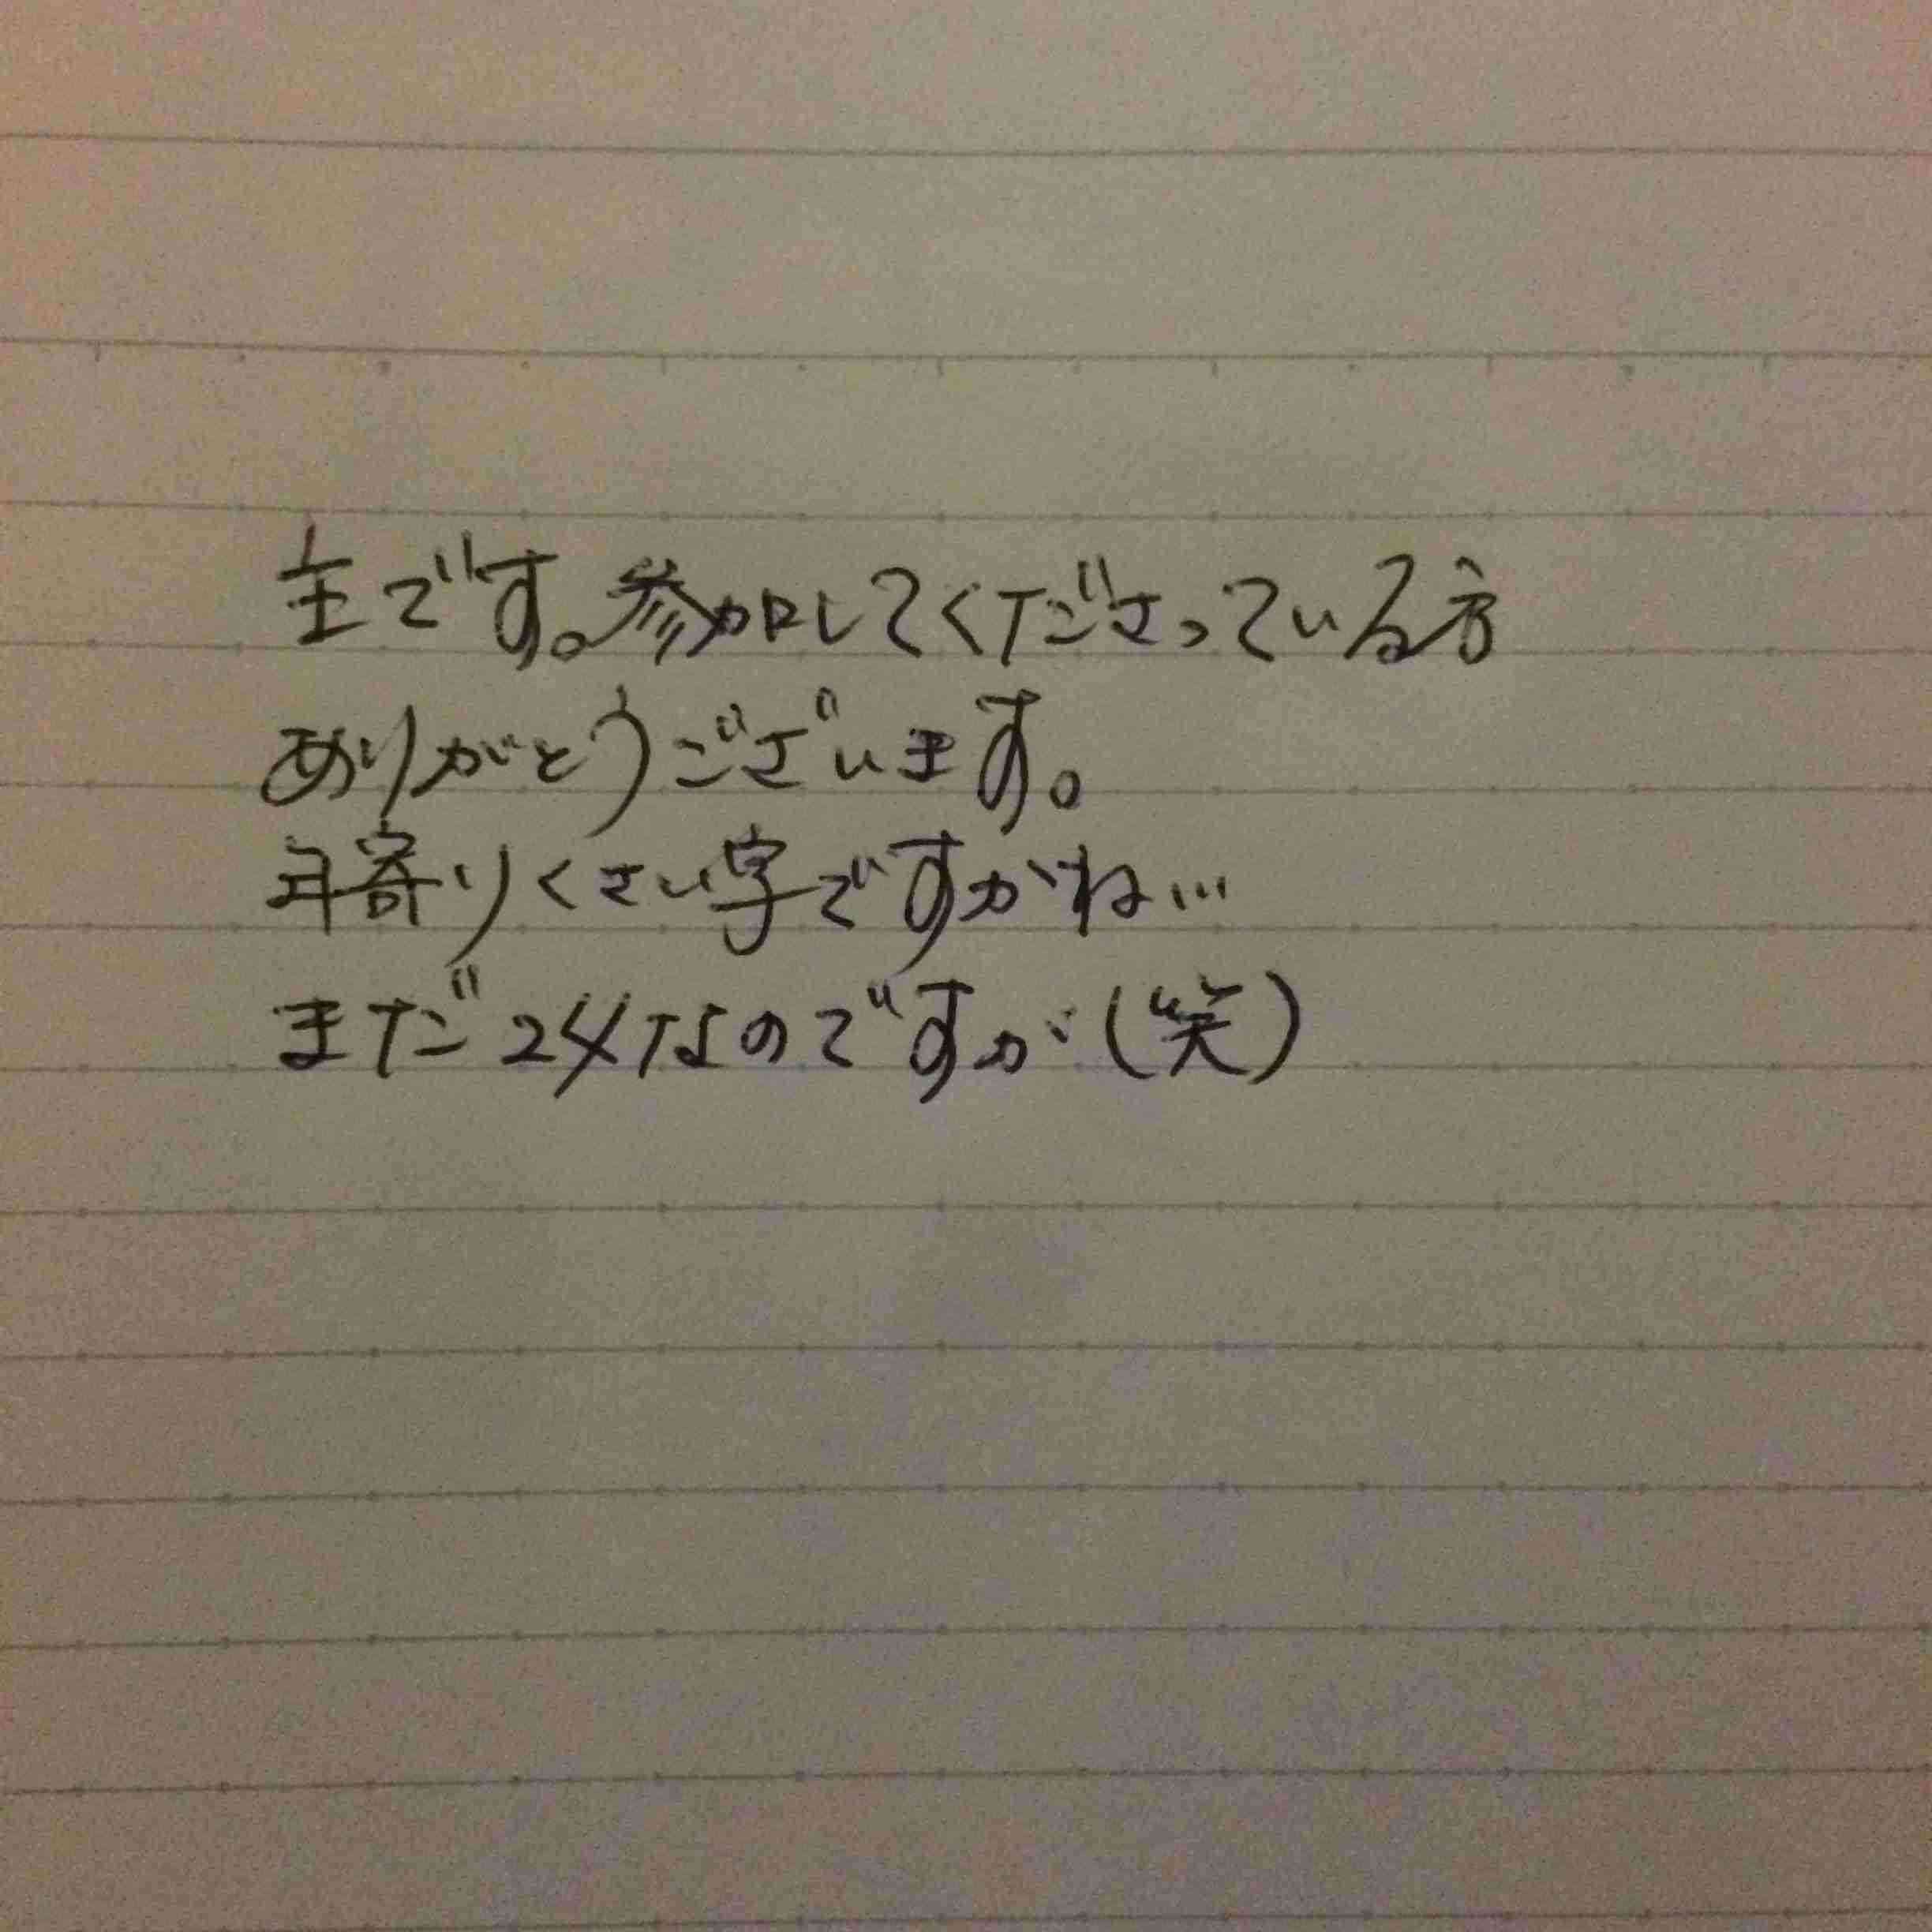 主です。参加してくださっている方
ありがとうございます。
年寄りくさい字ですかね…
まだ24なのですが(笑)